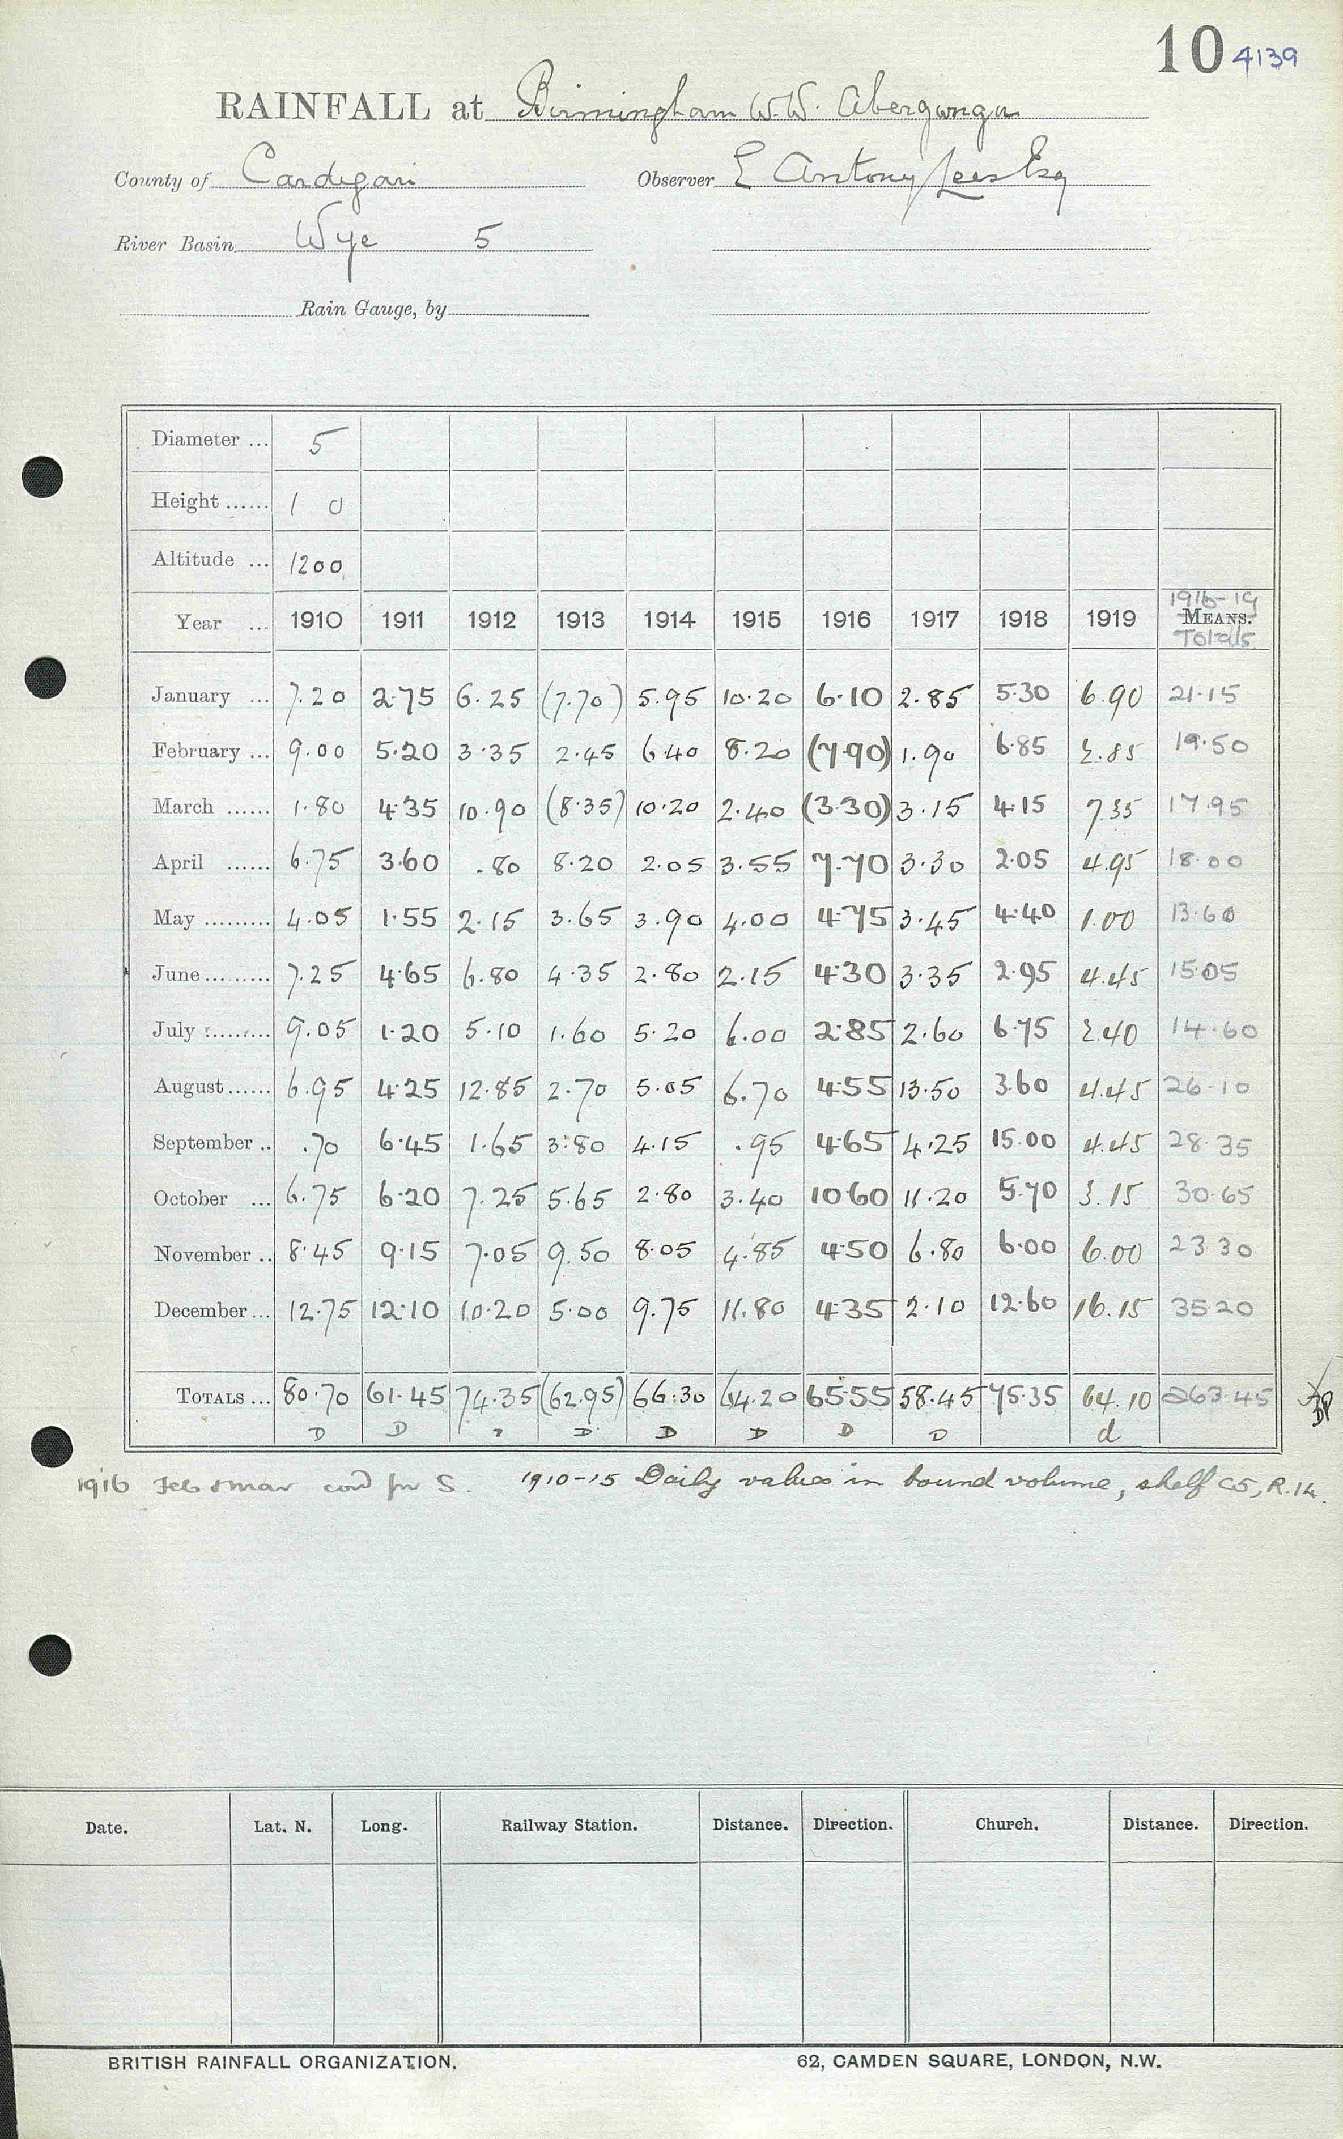 10 4139
RAINFALL at Birmingham W.W. Abergwngu
County of Cardigan Observer E Antony Lees Esq
River Basin Wye 5
Rain Gauge, by
Diameter ... 5
Height ...... 1 0
Altitude ... 1200
1916-19
Year ... 1910 1911 1912 1913 1914 1915 1916 1917 1918 1919 MEANS.
Totals
January ... 7.20 2.75 6.25 (7.70) 5.95 10.20 6.10 2.85 5.30 6.90 21.15
February ... 9.00 5.20 3.35 2.45 6.40 8.20 (7.90) 1.90 6.85 2.85 19.50
March ...... 1.80 4.35 10.90 (8.35) 10.20 2.40 (3.30) 3.15 4.15 7.35 17.95
April ...... 6.75 3.60 .80 8.20 2.05 3.55 7.70 3.30 2.05 4.95 18.00
May ......... 4.05 1.55 2.15 3.65 3.90 4.00 4.75 3.45 4.40 1.00 13.60
June ......... 7.25 4.65 6.80 4.35 2.80 2.15 4.30 3.35 2.95 4.45 15.05
July ......... 9.05 1.20 5.10 1.60 5.20 6.00 2.85 2.60 6.75 2.40 14.60
August ...... 6.95 4.25 12.85 2.70 5.05 6.70 4.55 13.50 3.60 4.45 26.10
September .. .70 6.45 1.65 3.80 4.15 .95 4.65 4.25 15.00 4.45 28.35
October ... 6.75 6.20 7.25 5.65 2.80 3.40 10.60 11.20 5.70 3.15 30.65
November .. 8.45 9.15 7.05 9.50 8.05 4.85 4.50 6.80 6.00 6.00 23.30
December ... 12.75 12.10 10.20 5.00 9.75 11.80 4.35 2.10 12.60 16.15 35.20
TOTALS ... 80.70 61.45 74.35 (62.95) 66.30 64.20 65.55 58.45 75.35 64.10 263.45
D D D D D D D d
1916 Feb & Mar cord for S 1910-15 Daily values in bound volume, shelf C5, R.14.
Date. Lat. N. Long. Railway Station. Distance. Direction. Church. Distance. Direction.
BRITISH RAINFALL ORGANIZATION. 62, CAMDEN SQUARE, LONDON, N.W.